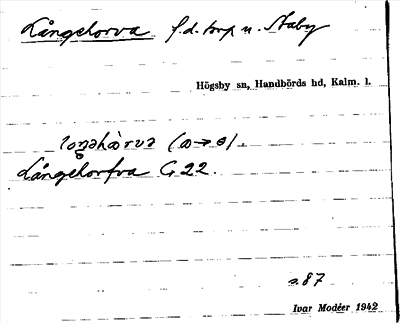 Långelorva f.d. torp u. Staby
Högsby sn, Handbörds hd, Kalm. l.
Långelorfva G 22.
s. 87
Ivar Modéer 1942